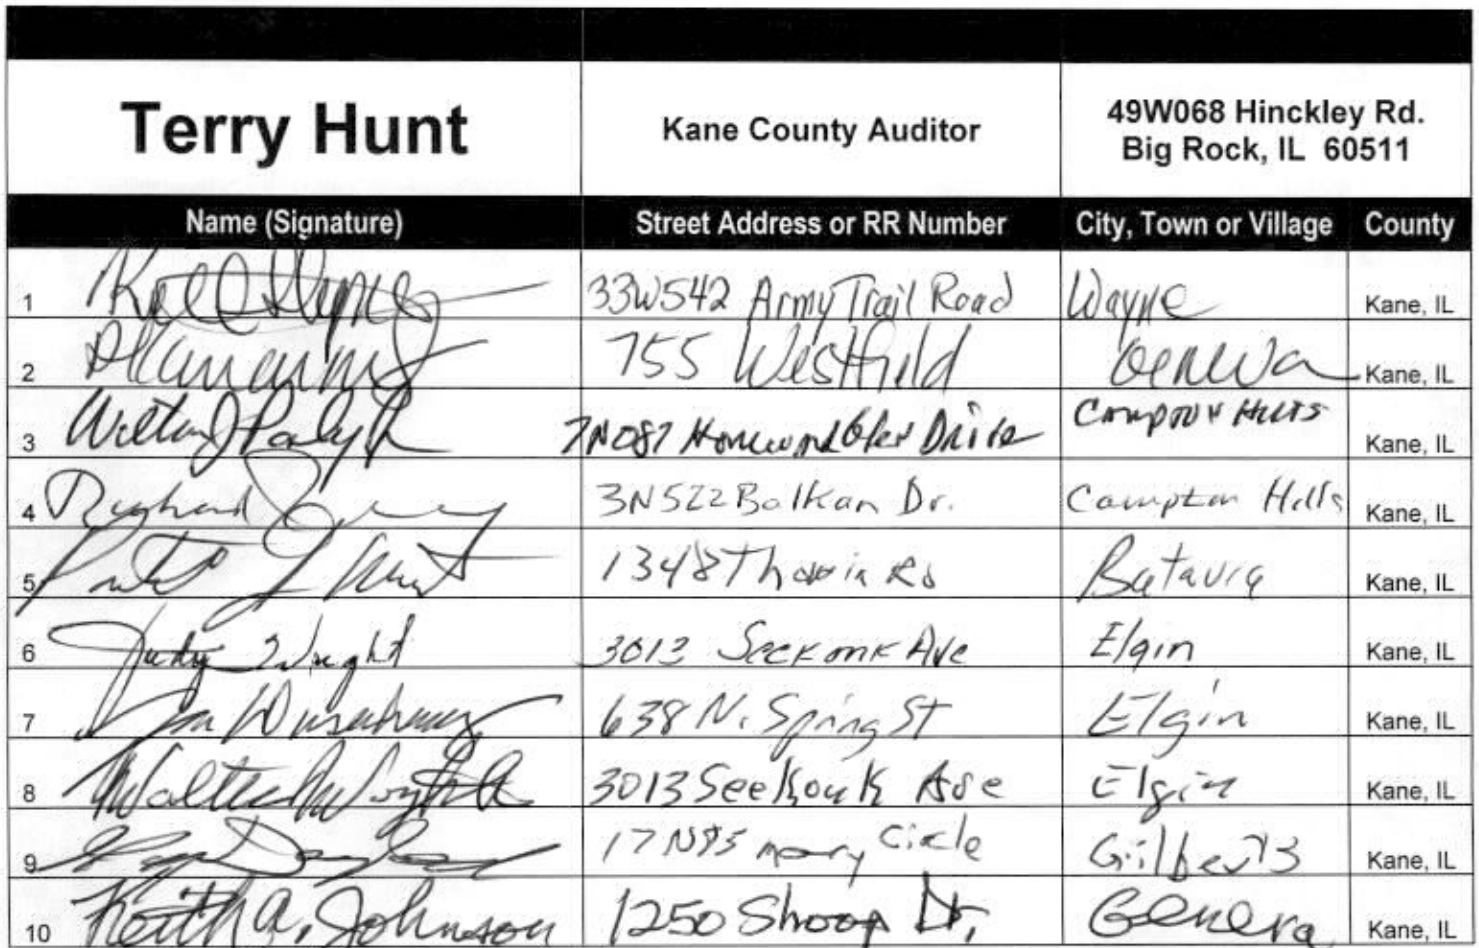 Terry Hunt Kane County Auditor 49W068 Hinckley Rd.
Big Rock, IL 60511
Name (Signature) Street Address or RR Number City, Town or Village County
1 33W542 Army Trail Road Wayne Kane, IL
2 755 Westfield Geneva Kane, IL
3 7N087 Drive Campton Hills Kane, IL
4 Richard 3N522 Balkan Dr. Campton Hills Kane, IL
5 J Hunt 1348 Rd Batavia Kane, IL
6 Judy Wright 3013 Seekonk Ave Elgin Kane, IL
7 638 N. Spring St Elgin Kane, IL
8 Walter 3013 Seekonk Ave Elgin Kane, IL
9 Circle Kane, IL
10 Keith A. Johnson 1250 Shoop Dr. Geneva Kane, IL